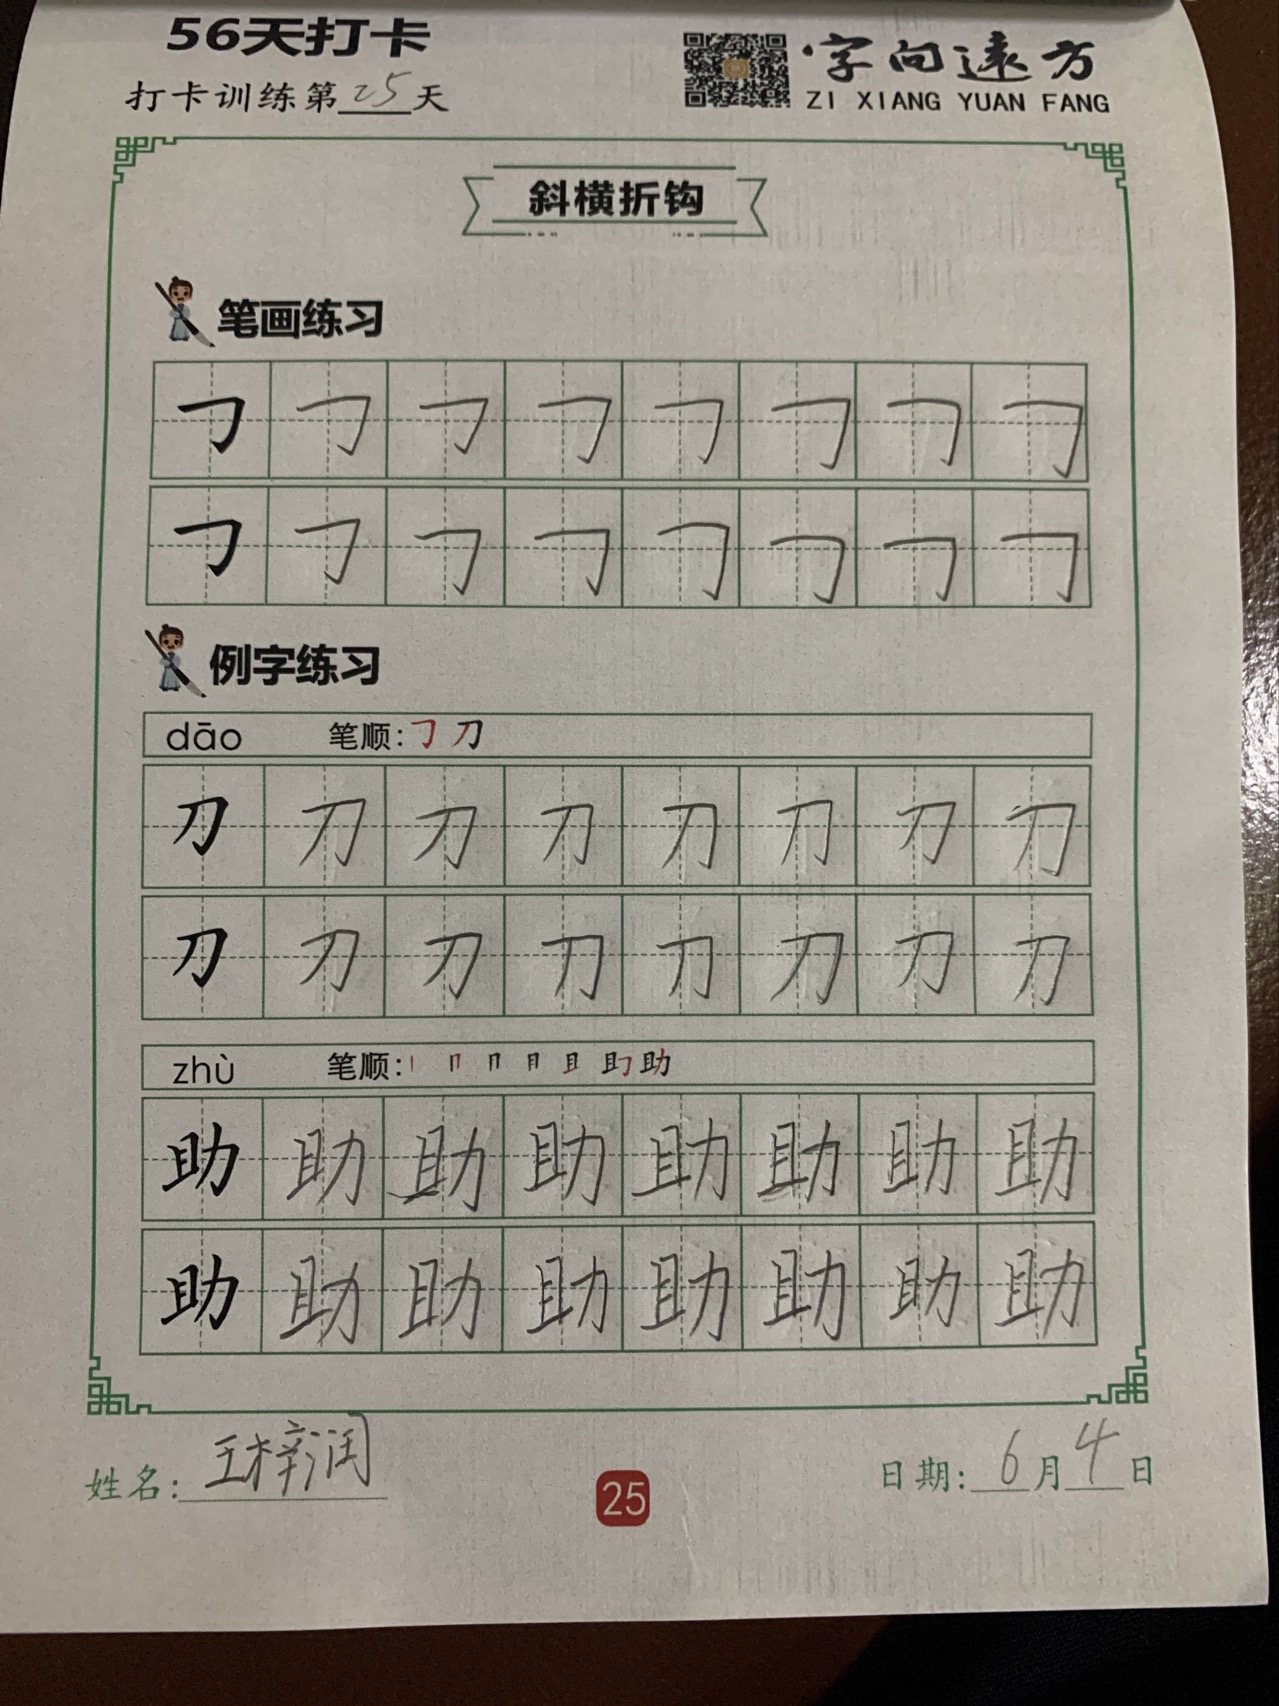 56天打卡
打卡训练第25天
字向远方
ZI XIANG YUAN FANG
斜横折钩
笔画练习
㇆ ㇆ ㇆ ㇆ ㇆ ㇆ ㇆ ㇆
㇆ ㇆ ㇆ ㇆ ㇆ ㇆ ㇆ ㇆
例字练习
dāo 笔顺: ㇆ 刀
刀 刀 刀 刀 刀 刀 刀 刀
刀 刀 刀 刀 刀 刀 刀 刀
zhù 笔顺: 助
助 助 助 助 助 助 助 助
助 助 助 助 助 助 助 助
姓名: 王梓润
25
日期: 6月4日